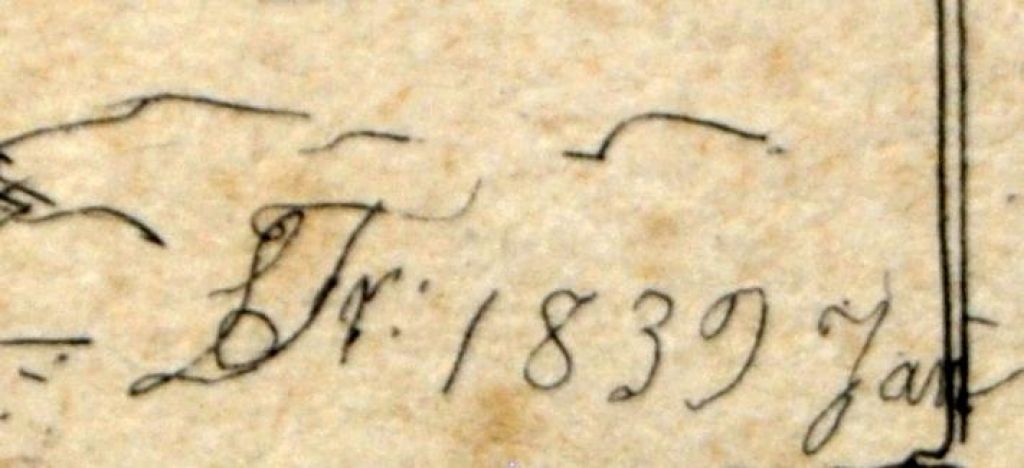 Fr: 1839 Jan